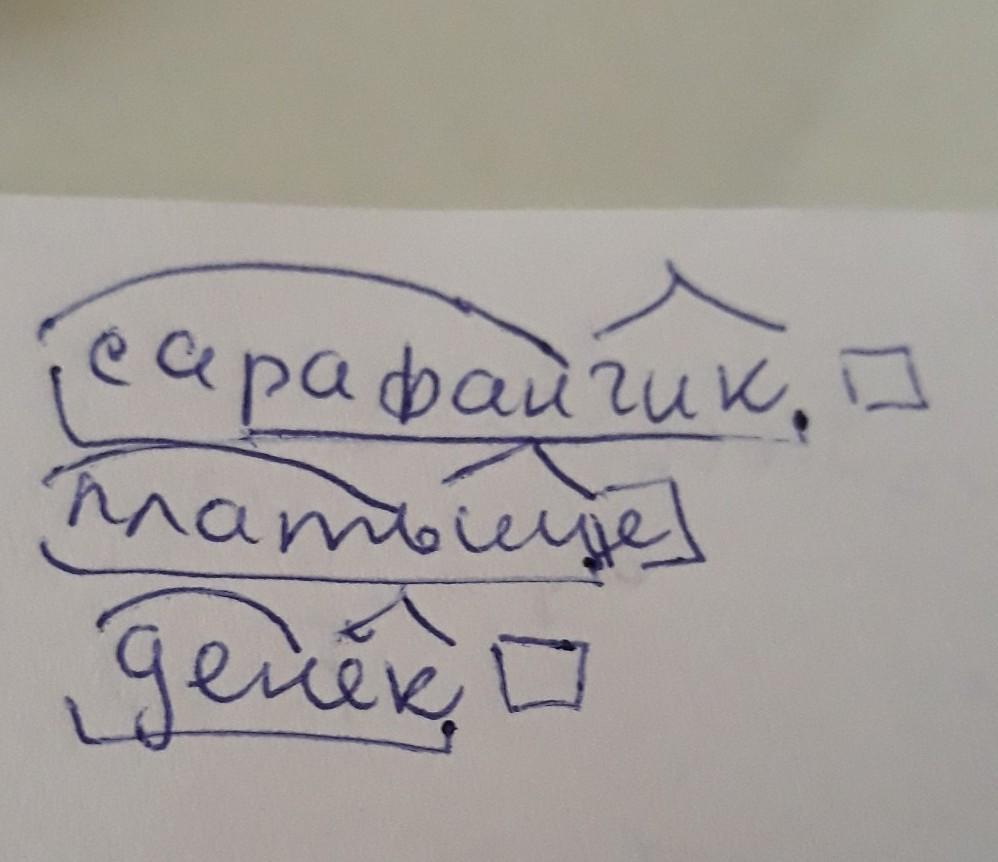 сарафанчик
платьице
денёк